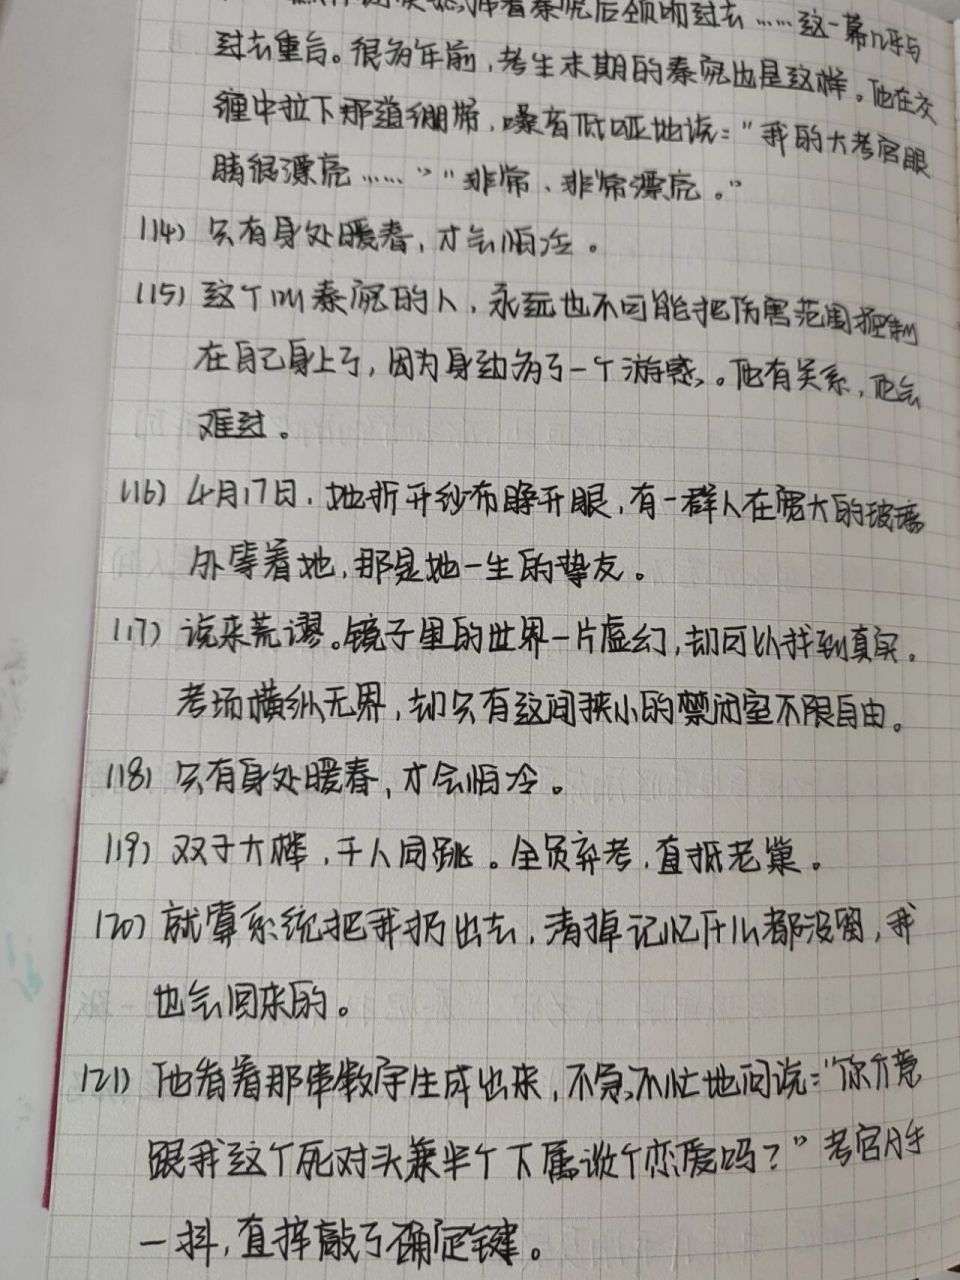 着秦究后颈吻过去……这一幕几乎与
过去重合。很多年前，考生末期的秦究也是这样。他在交
缠中拉下那道绷带，嗓音低哑地说："我的大考官眼
睛很漂亮……""非常、非常漂亮。"
114) 只有身处暖春，才会怕冷。
115) 这个叫秦究的人，永远也不可能把伤害范围控制
在自己身上了，因为身边多了一个游惑。他有关系，他会
难过。
116) 4月17日，她拆开纱布睁开眼，有一群人在宽大的玻璃
外等着她，那是她一生的挚友。
117) 说来荒谬。镜子里的世界一片虚幻，却可以找到真实。
考场横纵无界，却只有这间狭小的禁闭室不限自由。
118) 只有身处暖春，才会怕冷。
119) 双子大楼，千人同跳。全员弃考，直抵老巢。
120) 就算系统把我扔出去，清掉记忆什么都没留，我
也会回来的。
121) 他看着那串数字生成出来，不急不忙地问说："你介意
跟我这个死对头兼半个下属谈个恋爱吗？"考官A手
一抖，直接敲了确定键。